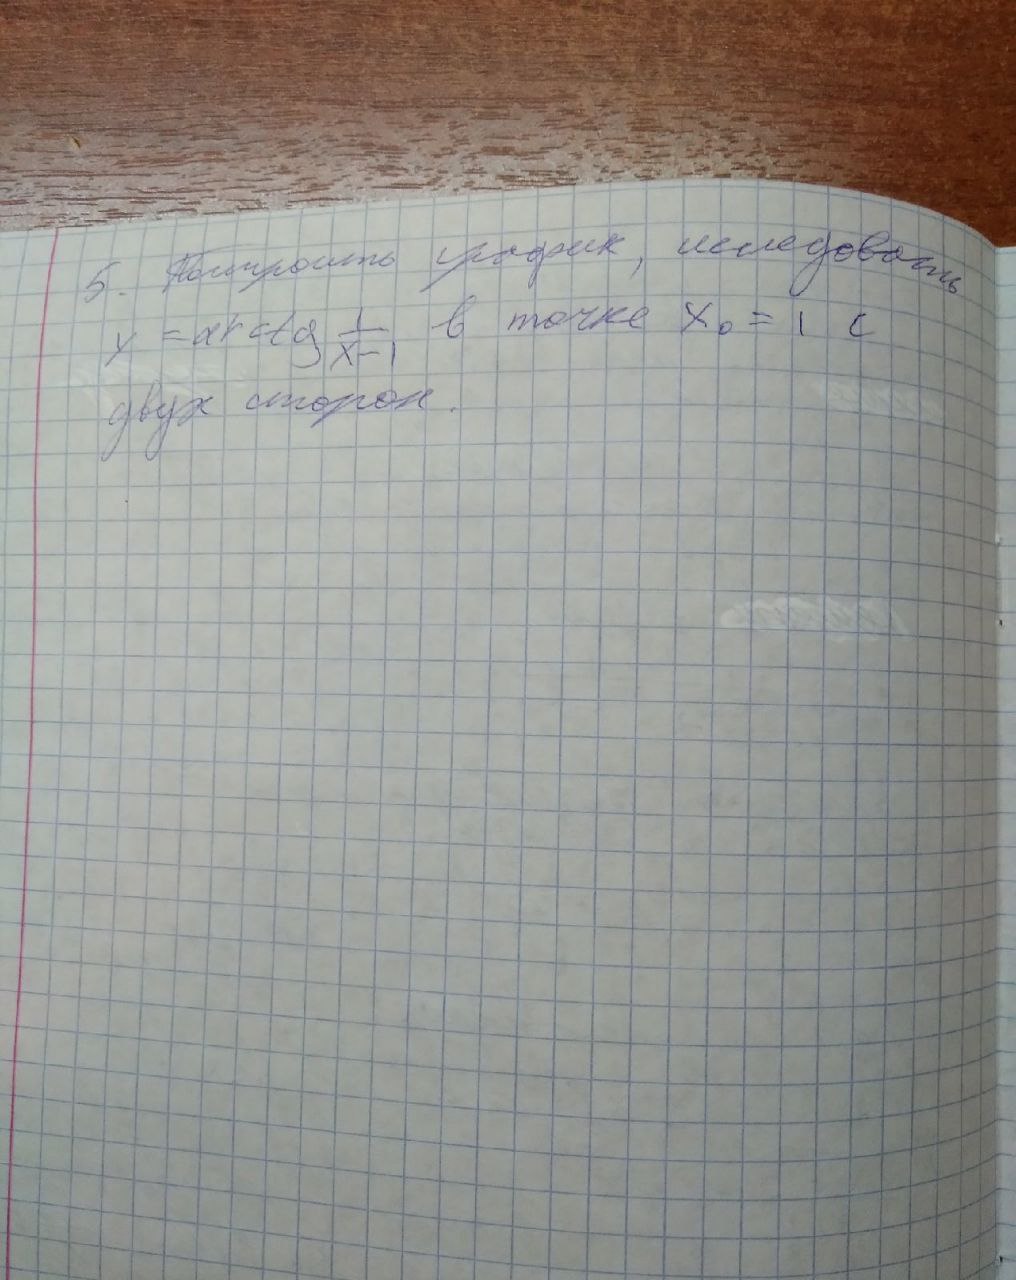 5. Построить график, исследовать
y = arctg 1/(x-1) в точке x₀ = 1 с
двух сторон.